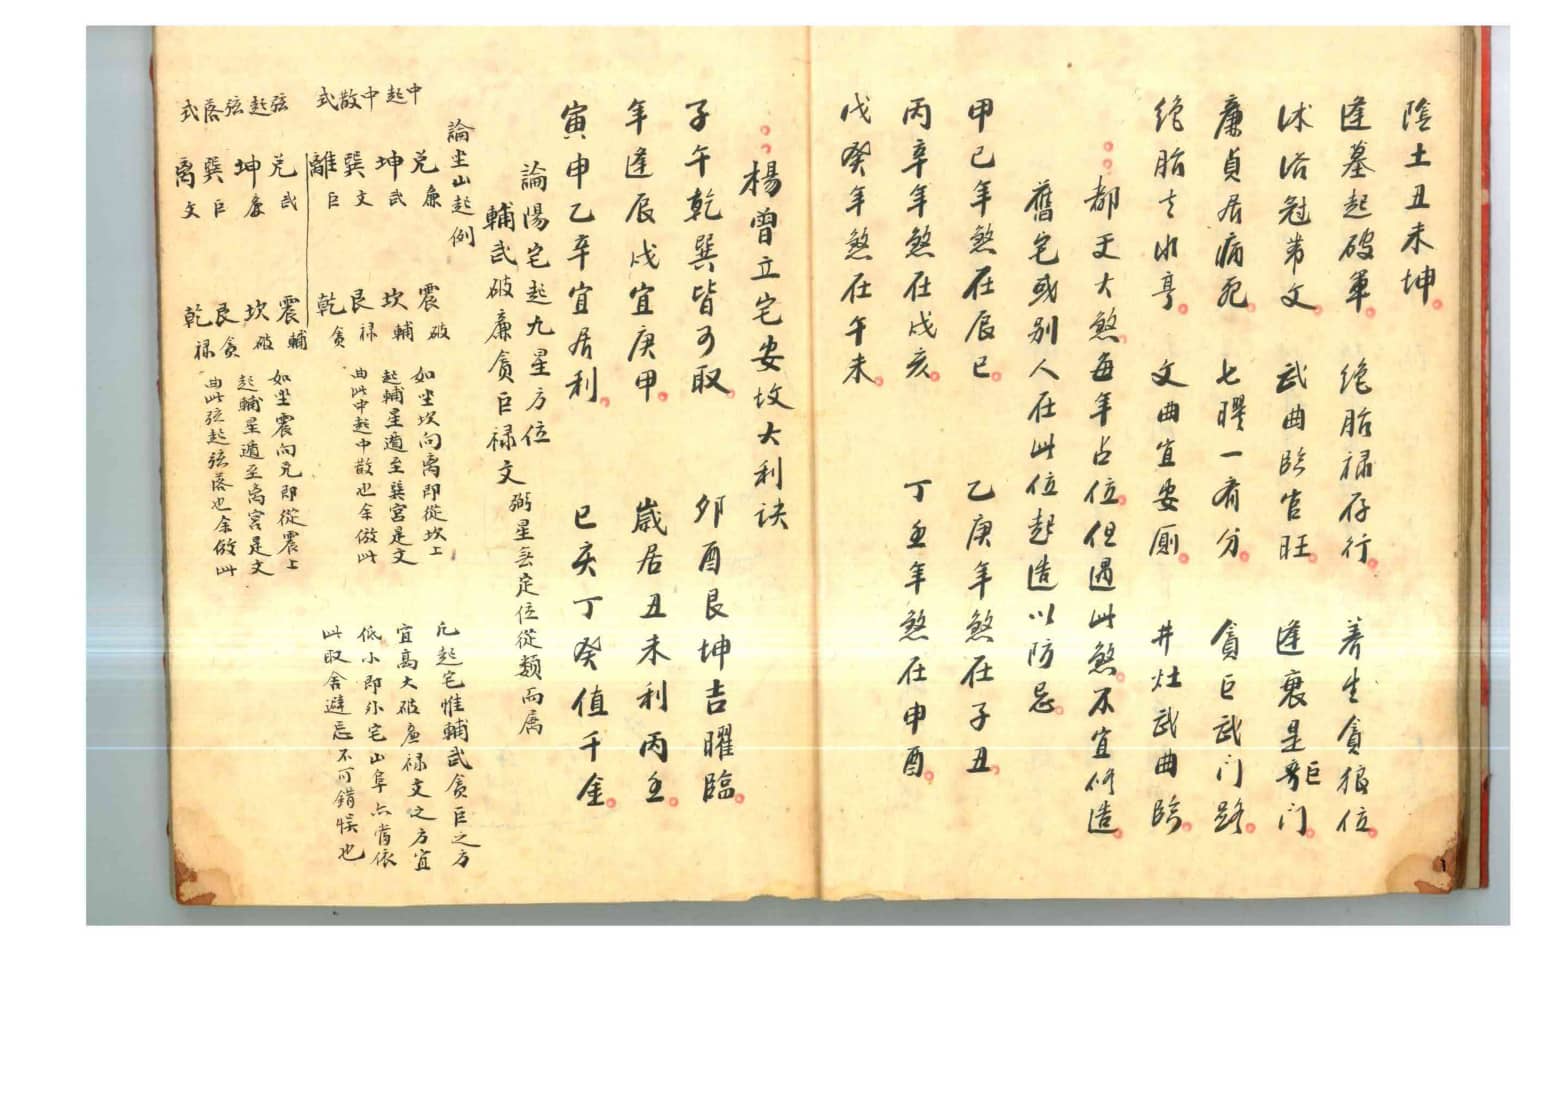 陰土丑未坤
逢墓起破軍 絕胎祿存行 養生貪狼位
沐浴冠帶文 武曲臨官旺 逢衰是巨門
廉貞居病死 七曜一齊分 貪巨武門路
絕胎去水亨 文曲宜安厠 井灶武曲臨
都天大煞每年占位但遇此煞不宜修造
舊宅或別人在此位起造以防忌
甲己年煞在辰巳 乙庚年煞在子丑
丙辛年煞在戌亥 丁壬年煞在申酉
戊癸年煞在午未
楊曾立宅安坟大利訣
子午乾巽皆可取 卯酉艮坤吉曜臨
年逢辰戌宜庚甲 歲居丑未利丙壬
寅申乙辛宜居利 巳亥丁癸值千金
論陽宅起九星方位
輔武破廉貪巨祿文 弼星無定位從類而屬
論坐山起例
中起中散式
兌廉 震破 如坐坎向离即從坎上
坤武 坎輔 起輔星遁至巽宮是文
巽文 艮祿 曲此中起中散也余倣此
離巨 乾貪
凡起宅惟輔武貪巨之方
宜高大破廉祿文之方宜
低小即外宅山阜亦當依
此取舍避忌不可錯悞也
弦起弦落式
兌武 震輔 如坐震向兌即從震上
坤廉 坎破 起輔星遁至离宮是文
巽巨 艮貪 曲此弦起弦落也余倣此
离文 乾祿